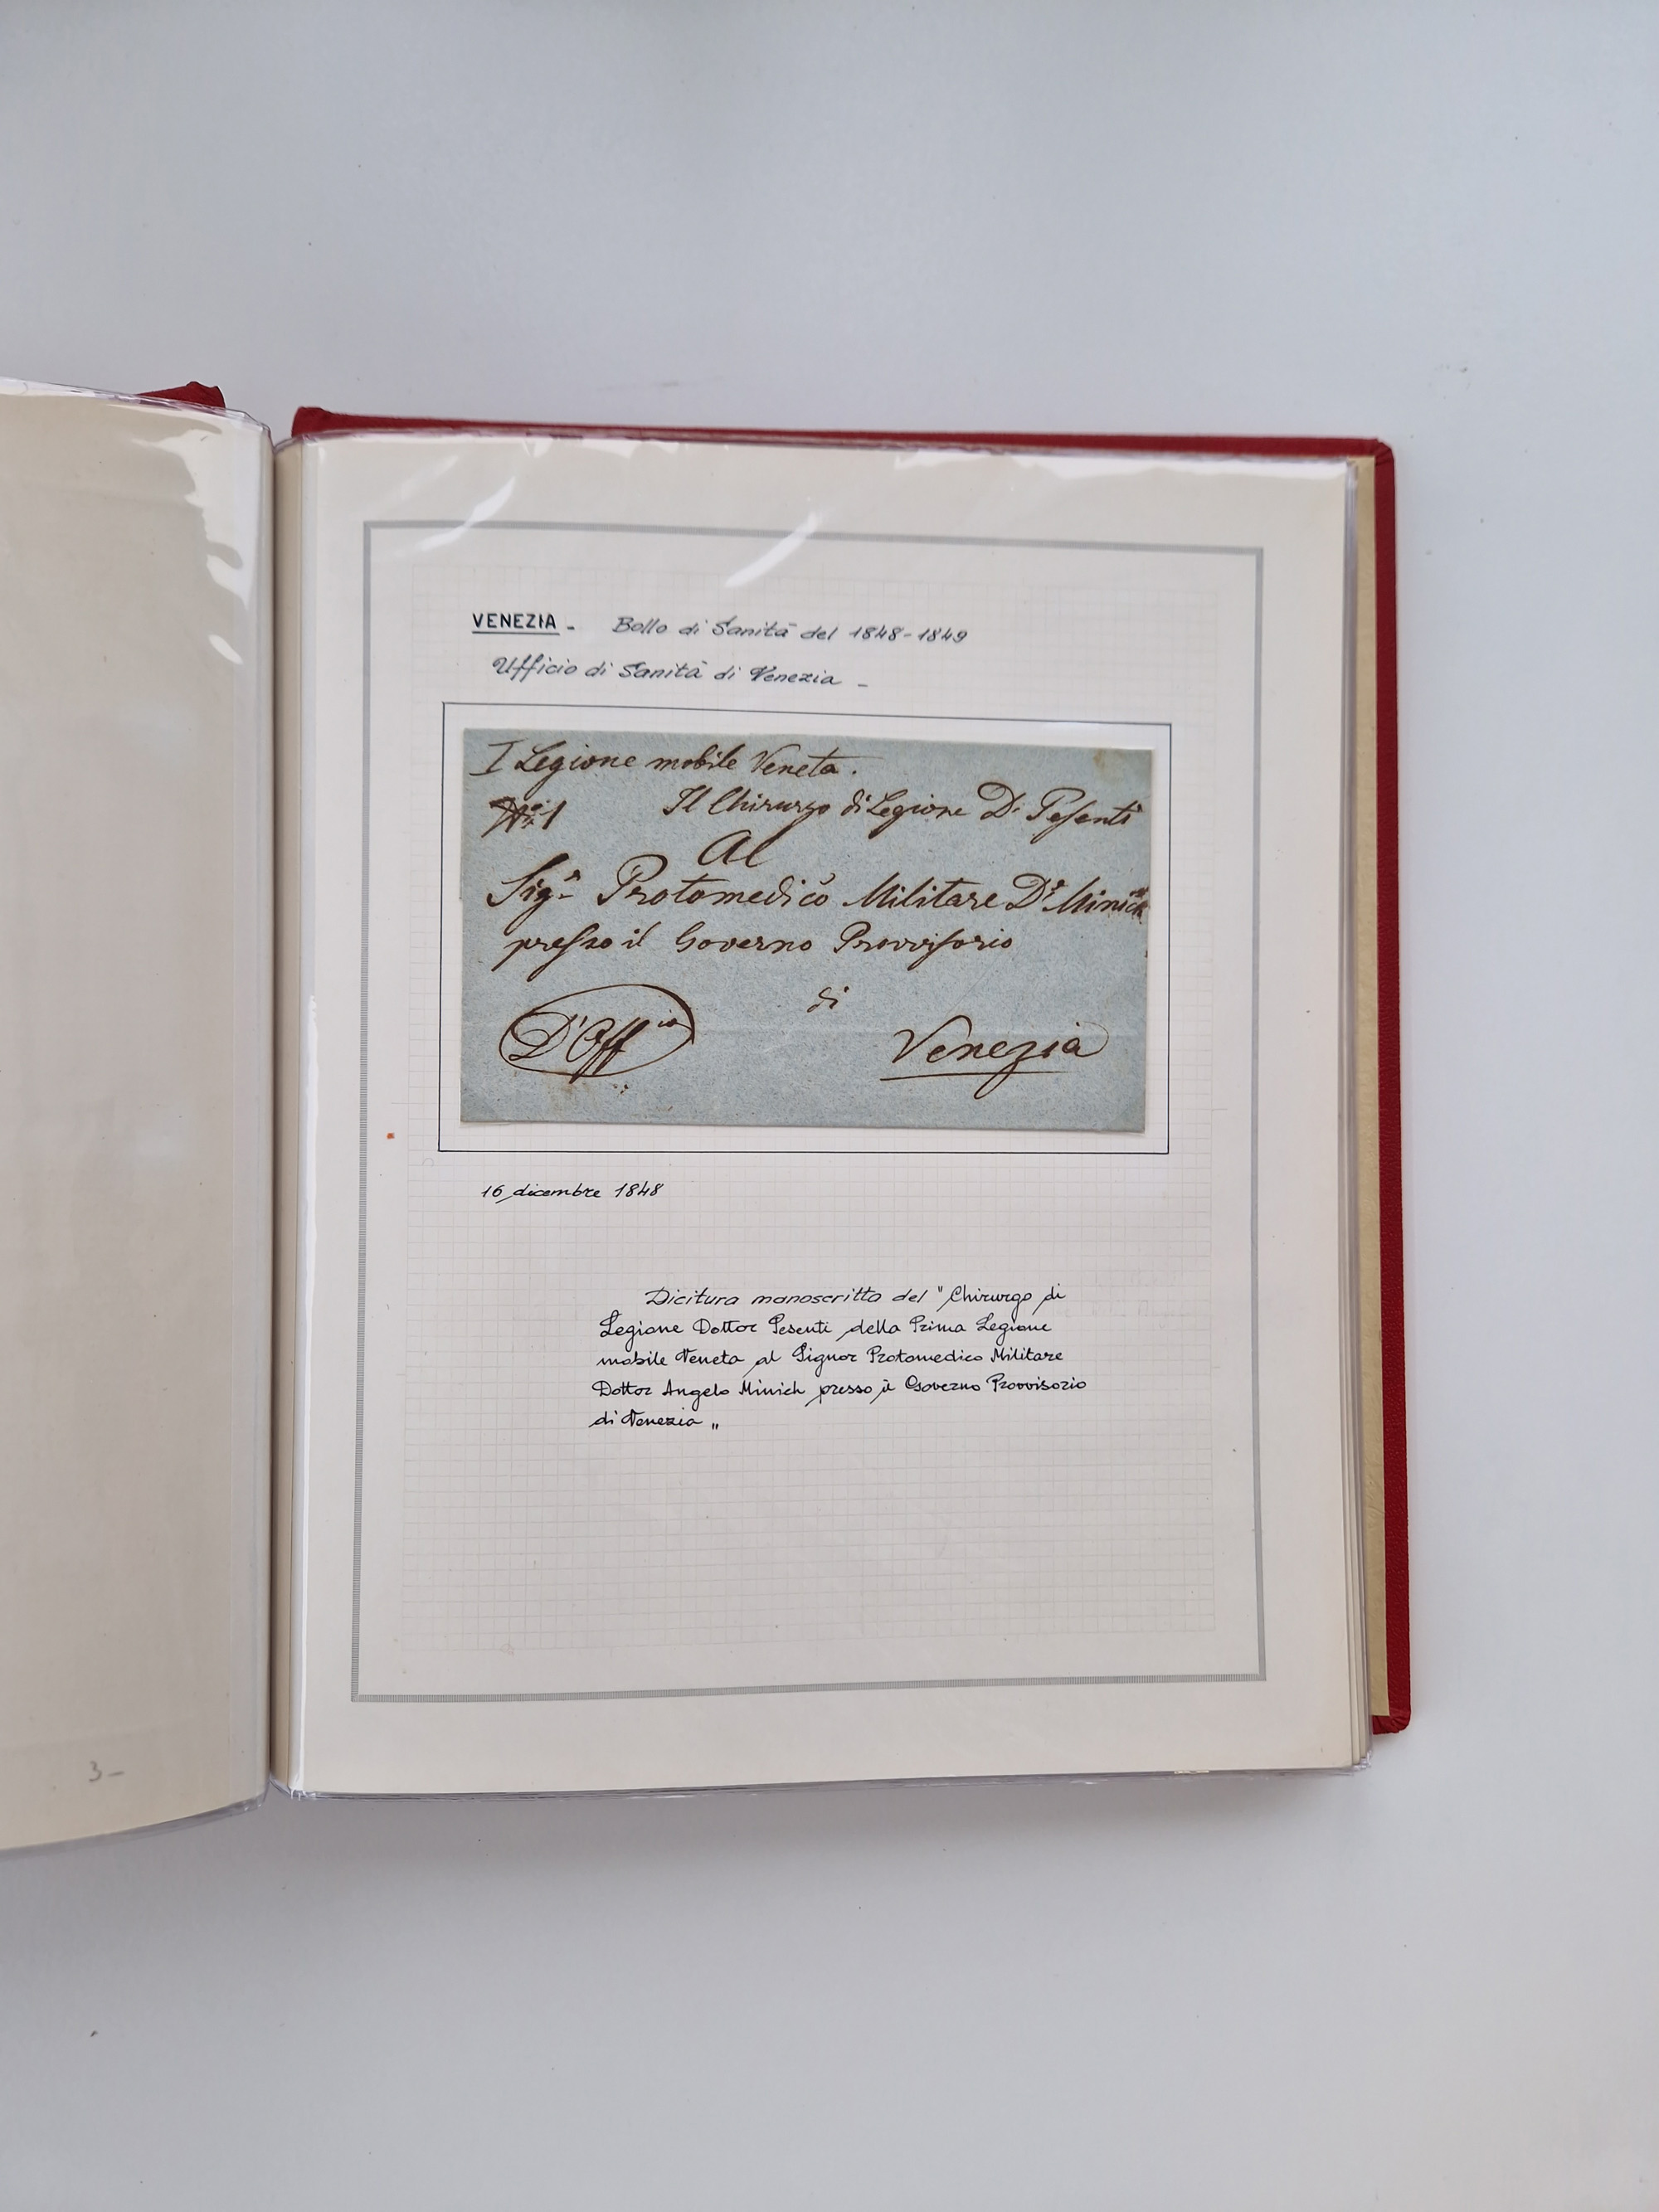 VENEZIA - Bollo di Sanità del 1848-1849
Ufficio di Sanità di Venezia -
I Legione mobile Veneta.
N° 1 Il Chirurgo di Legione Dr Pesenti
Al
Sigr Protomedico Militare Dr Minich
presso il Governo Provvisorio
di
D'Offio Venezia
16 dicembre 1848
Dicitura manoscritta del "Chirurgo di
Legione Dottor Pesenti della Prima Legione
mobile Veneta al Signor Protomedico Militare
Dottor Angelo Minich presso il Governo Provvisorio
di Venezia „
3-